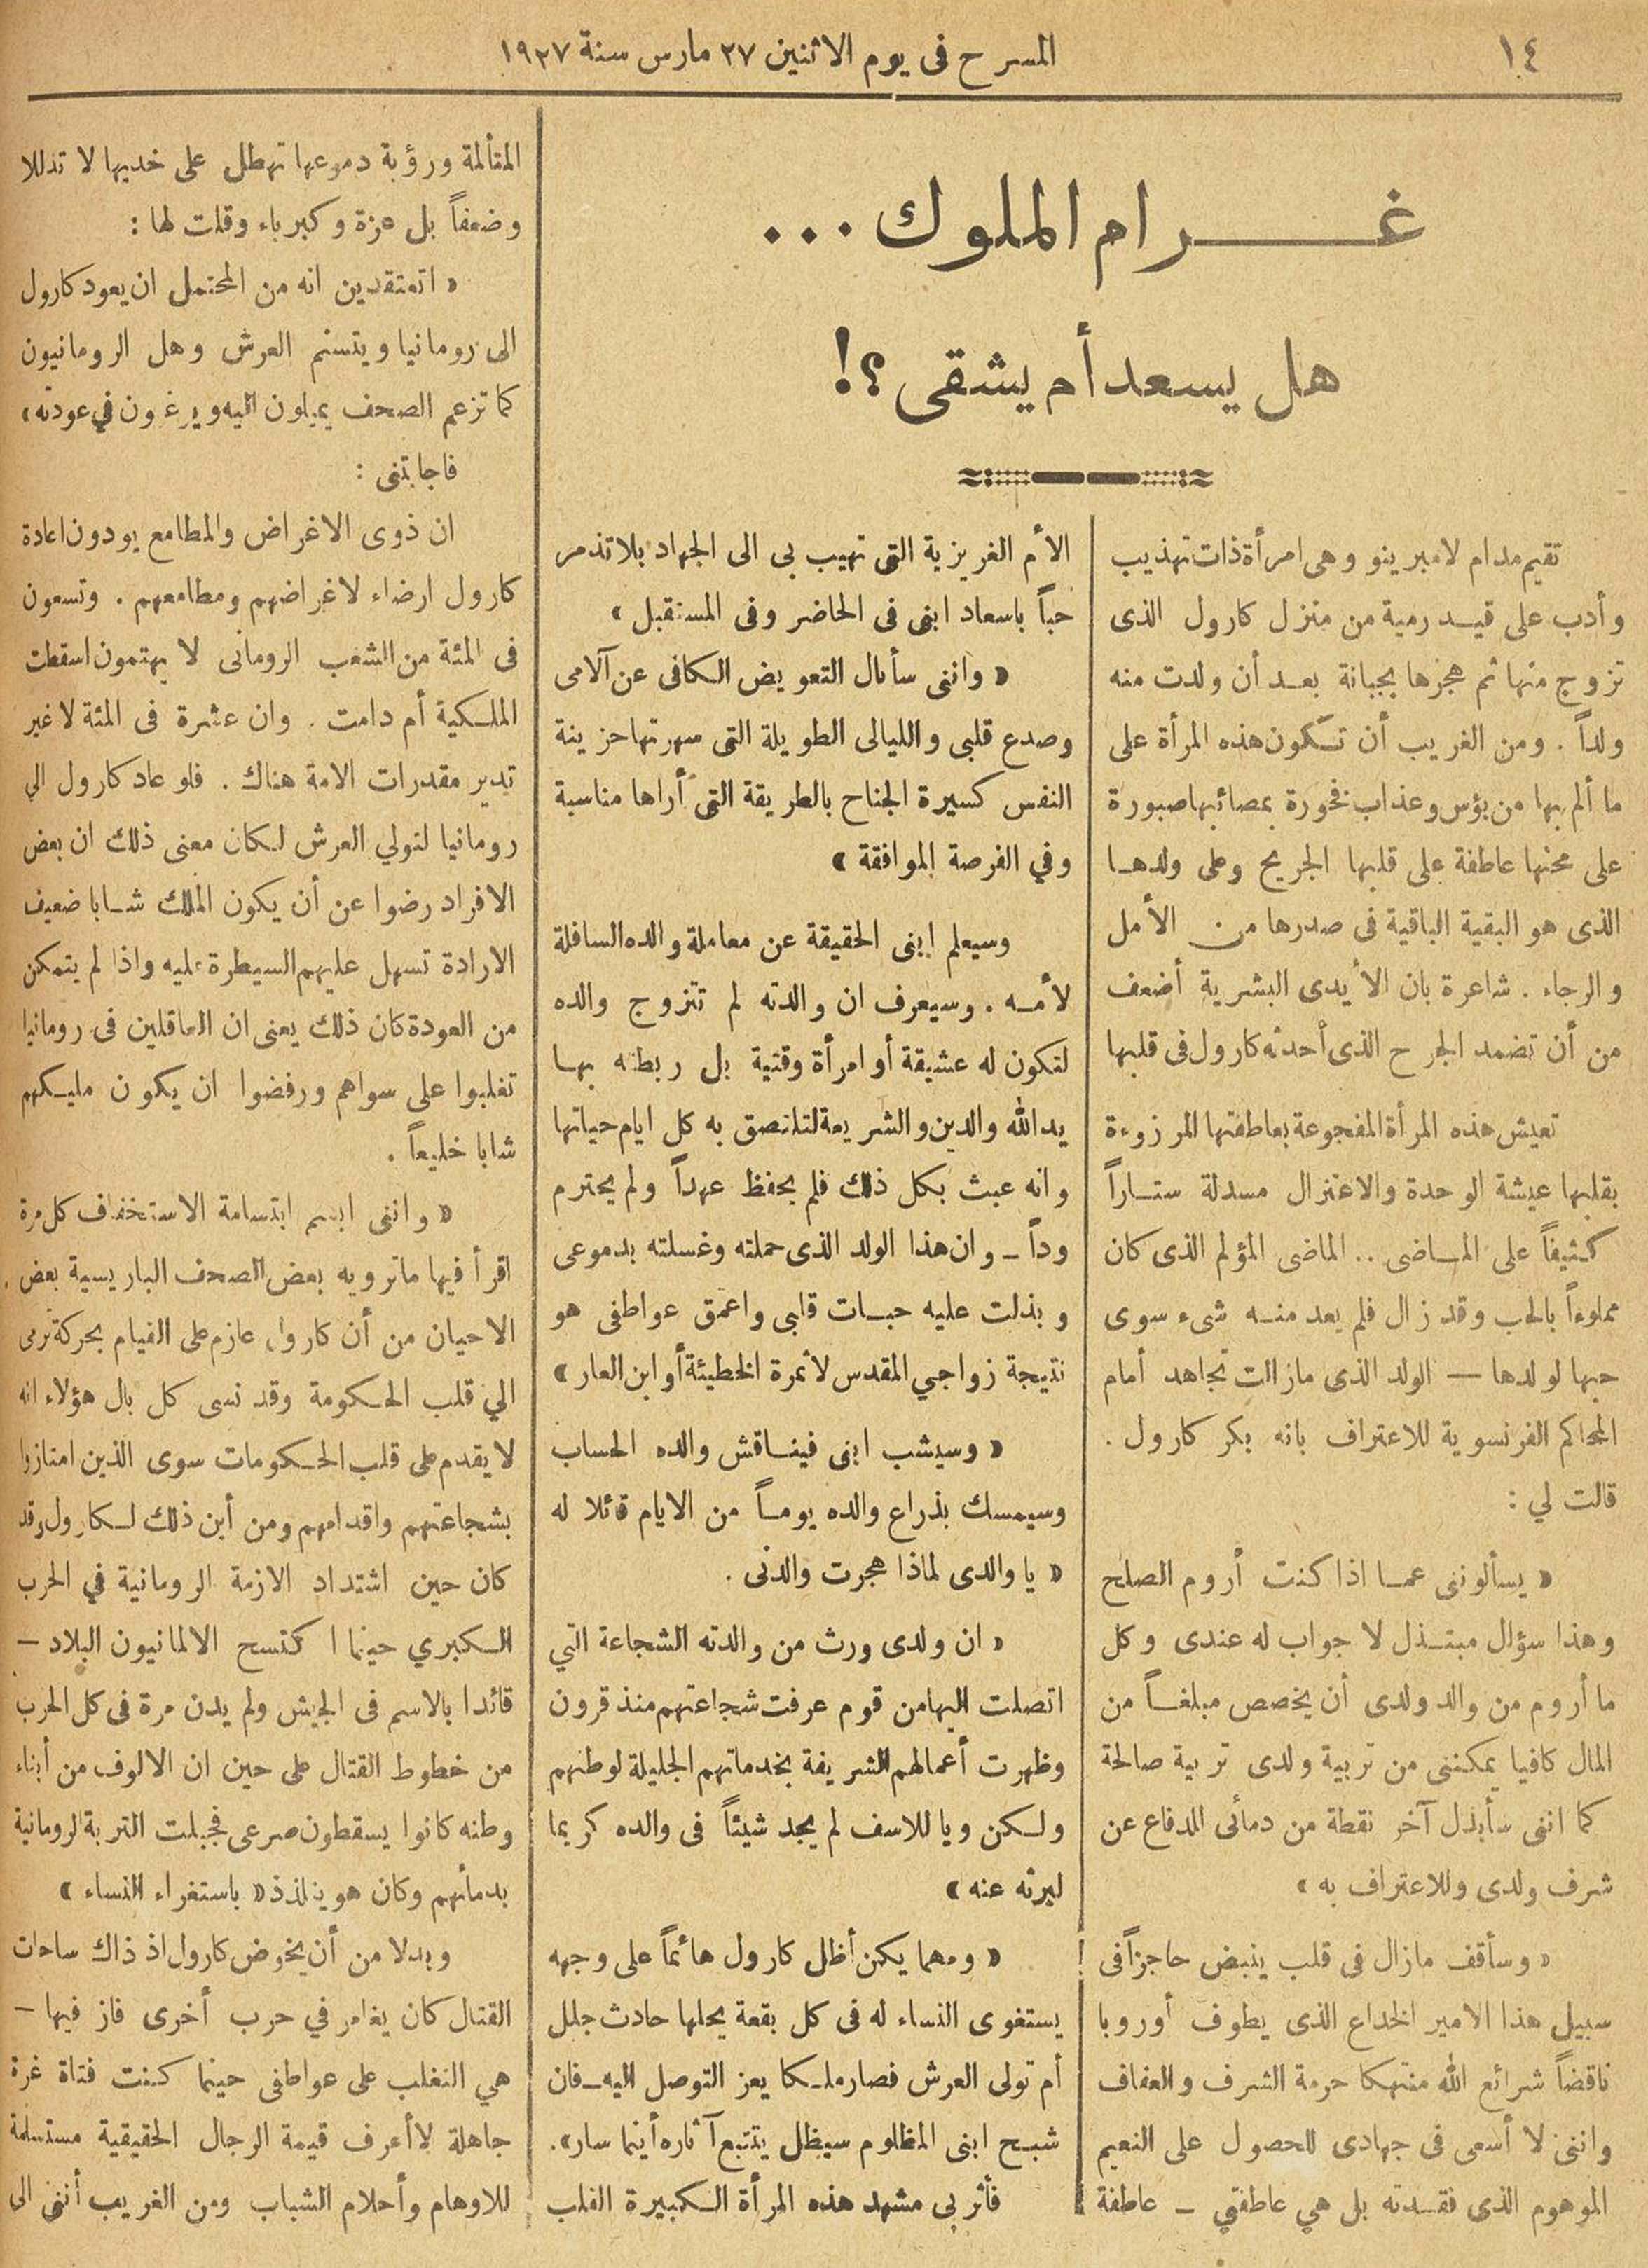 ١٤
المسرح فى يوم الاثنين ٢٧ مارس سنة ١٩٢٧
غرام الملوك ...
هل يسعد أم يشقى ؟!
تقيم مدام لامبرينو وهى امرأة ذات تهذيب
وأدب على قيد رمية من منزل كارول الذى
تزوج منها ثم هجرها بجبانة بعد أن ولدت منه
ولداً . ومن الغريب أن تكون هذه المرأة على
ما ألم بها من بؤس وعذاب فخورة بمصائبها صبورة
على محنها عاطفة على قلبها الجريح وعلى ولدها
الذى هو البقية الباقية فى صدرها من الأمل
والرجاء . شاعرة بان الأيدى البشرية أضعف
من أن تضمد الجرح الذى أحدثه كارول فى قلبها
تعيش هذه المرأة المفجوعة بعاطفتها المرزوءة
بقلبها عيشة الوحدة والاعتزال مسدلة ستاراً
كثيفاً على الماضى .. الماضى المؤلم الذى كان
مملوءاً بالحب وقد زال فلم يعد منه شىء سوى
حبها لولدها — الولد الذى مازالت تجاهد أمام
المحاكم الفرنسوية للاعتراف بانه بكر كارول .
قالت لي :
« يسألوننى عما اذا كنت أروم الصلح
وهذا سؤال مبتذل لا جواب له عندى وكل
ما أروم من والد ولدى أن يخصص مبلغاً من
المال كافيا يمكننى من تربية ولدى تربية صالحة
كما اننى سأبذل آخر نقطة من دمائى للدفاع عن
شرف ولدى وللاعتراف به »
« وسأقف مازال فى قلب ينبض حاجزاً فى
سبيل هذا الامير الخداع الذى يطوف أوروبا
ناقضاً شرائع الله منتهكا حرمة الشرف والعفاف
واننى لا أسعى فى جهادى للحصول على النعيم
الموهوم الذى فقدته بل هي عاطفتي – عاطفة
الأم الغريزية التى تهيب بى الى الجهاد بلا تذمر
حباً باسعاد ابنى فى الحاضر وفى المستقبل »
« واننى سأنال التعويض الكافى عن آلامى
وصدع قلبى والليالى الطويلة التى سهرتها حزينة
النفس كسيرة الجناح بالطريقة التى أراها مناسبة
وفي الفرصة الموافقة »
وسيعلم ابنى الحقيقة عن معاملة والده السافلة
لأمه . وسيعرف ان والدته لم تتزوج والده
لتكون له عشيقة أو امرأة وقتية بل ربطته بها
يد الله والدين والشريعة لتلتصق به كل ايام حياتها
وانه عبث بكل ذلك فلم يحفظ عهداً ولم يحترم
وداً – وان هذا الولد الذى حملته وغسلته بدموعى
وبذلت عليه حبات قلبى واعمق عواطفى هو
نتيجة زواجي المقدس لا ثمرة الخطيئة أو ابن العار »
« وسيشب ابنى فيناقش والده الحساب
وسيمسك بذراع والده يوماً من الايام قائلا له
« يا والدى لماذا هجرت والدتى .
« ان ولدى ورث من والدته الشجاعة التي
اتصلت اليها من قوم عرفت شجاعتهم منذ قرون
وظهرت أعمالهم الشريفة بخدماتهم الجليلة لوطنهم
ولكن ويا للاسف لم يجد شيئاً فى والده كريما
ليرثه عنه »
« ومهما يكن أظل كارول هائماً على وجهه
يستغوى النساء له فى كل بقعة يحلها حادث جلل
أم تولى العرش فصار ملكا يعز التوصل اليه – فان
شبح ابنى المظلوم سيظل يتتبع آثاره أينما سار».
فأثر بى مشهد هذه المرأة الكبيرة القلب
المتألمة ورؤية دموعها تهطل على خديها لا تذللا
وضعفاً بل عزة وكبرياء وقلت لها :
« اتعتقدين انه من المحتمل ان يعود كارول
الى رومانيا ويتسنم العرش وهل الرومانيون
كما تزعم الصحف يميلون اليه ويرغبون في عودته »
فاجابتنى :
ان ذوى الاغراض والمطامع يودون اعادة
كارول ارضاء لاغراضهم ومطامعهم . وتسعون
فى المئة من الشعب الرومانى لا يهتمون اسقطت
الملكية أم دامت . وان عشرة فى المئة لا غير
تدير مقدرات الامة هناك . فلو عاد كارول الي
رومانيا لتولي العرش لكان معنى ذلك ان بعض
الافراد رضوا عن أن يكون الملك شابا ضعيف
الارادة تسهل عليهم السيطرة عليه واذا لم يتمكن
من العودة كان ذلك يعنى ان العاقلين فى رومانيا
تغلبوا على سواهم ورفضوا ان يكون مليكهم
شابا خليعاً .
« واننى ابسم ابتسامة الاستخفاف كل مرة
اقرأ فيها ماترويه بعض الصحف الباريسية بعض
الاحيان من أن كارول عازم على القيام بحركة ترمى
الي قلب الحكومة وقد نسى كل بال هؤلاء انه
لا يقدم على قلب الحكومات سوى الذين امتازوا
بشجاعتهم واقدامهم ومن أين ذلك لكارول وقد
كان حين اشتداد الازمة الرومانية في الحرب
الكبري حينما اكتسح الالمانيون البلاد —
قائدا بالاسم فى الجيش ولم يدن مرة فى كل الحرب
من خطوط القتال على حين ان الالوف من أبناء
وطنه كانوا يسقطون صرعى فجبلت التربة الرومانية
بدمائهم وكان هو يتلذذ « باستغراء النساء »
وبدلا من أن يخوض كارول اذ ذاك ساحات
القتال كان يغامر في حرب أخرى فاز فيها —
هي التغلب على عواطفى حينما كنت فتاة غرة
جاهلة لا أعرف قيمة الرجال الحقيقية مستسلمة
للاوهام وأحلام الشباب ومن الغريب أننى الى